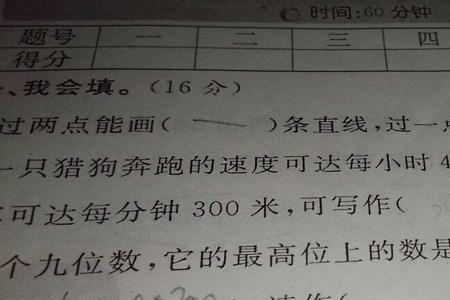 时间:60 分钟
题号 一 二 三 四
得分
、我会填。(16 分)
过两点能画( 一 )条直线,过一
一只猎狗奔跑的速度可达每小时 4
可达每分钟 300 米,可写作(
个九位数,它的最高位上的数是